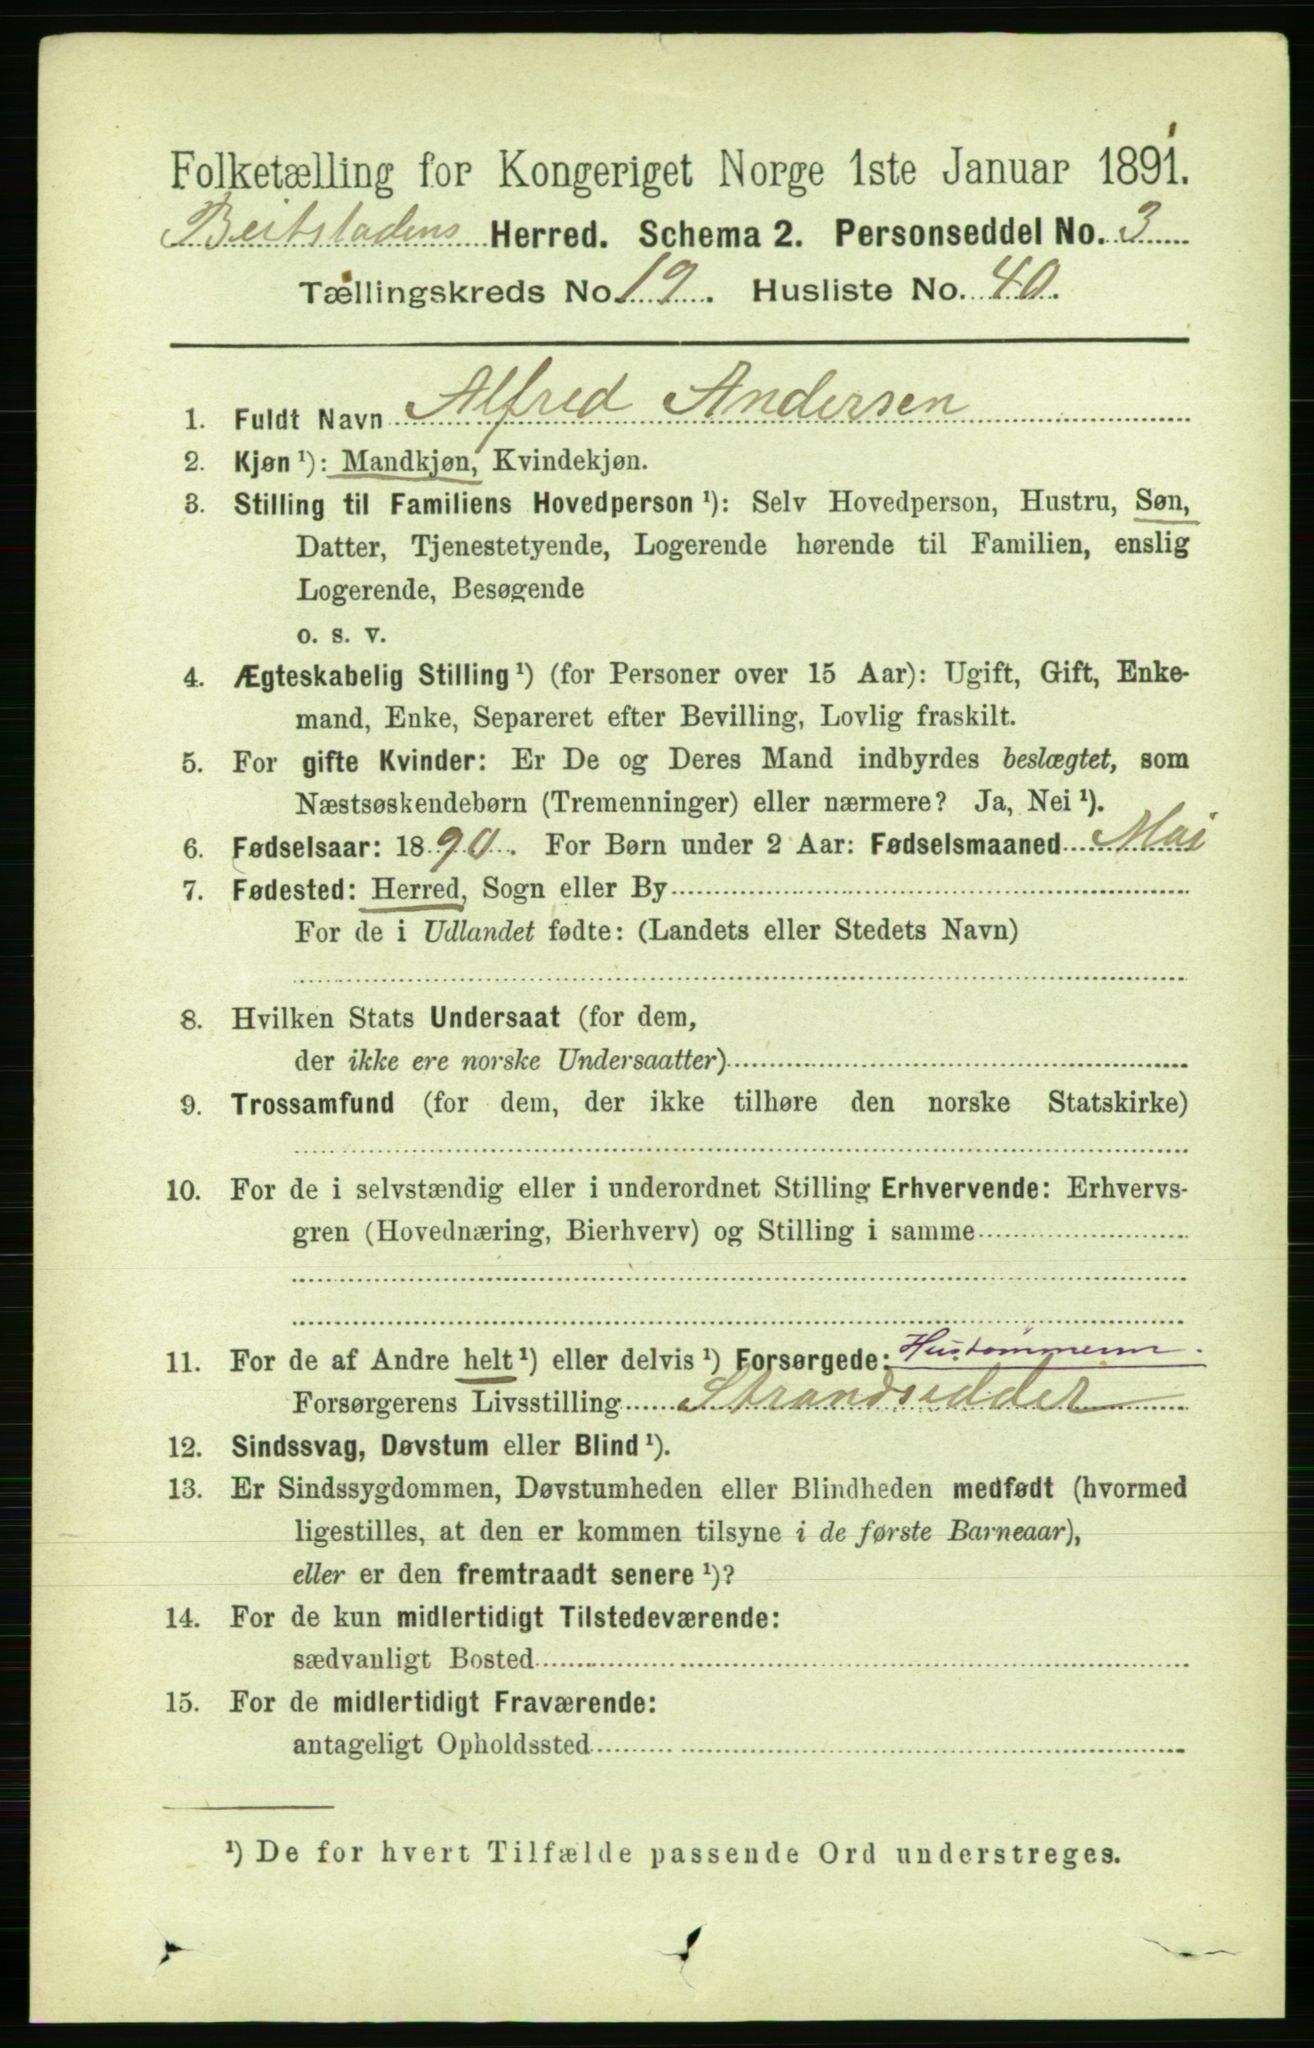 Folketælling for Kongeriget Norge 1ste Januar 1891.
Beitstadens Herred. Schema 2. Personseddel No. 3
Tællingskreds No 19. Husliste No. 40.
1. Fuldt Navn Alfred Andersen
2. Kjøn ¹): Mandkjøn, Kvindekjøn.
3. Stilling til Familiens Hovedperson ¹): Selv Hovedperson, Hustru, Søn,
Datter, Tjenestetyende, Logerende hørende til Familien, enslig
Logerende, Besøgende
o. s. v.
4. Ægteskabelig Stilling ¹) (for Personer over 15 Aar): Ugift, Gift, Enke-
mand, Enke, Separeret efter Bevilling, Lovlig fraskilt.
5. For gifte Kvinder: Er De og Deres Mand indbyrdes beslægtet, som
Næstsøskendebørn (Tremenninger) eller nærmere? Ja, Nei ¹).
6. Fødselsaar: 1890. For Børn under 2 Aar: Fødselsmaaned Mai
7. Fødested: Herred, Sogn eller By
For de i Udlandet fødte: (Landets eller Stedets Navn)
8. Hvilken Stats Undersaat (for dem,
der ikke ere norske Undersaatter)
9. Trossamfund (for dem, der ikke tilhøre den norske Statskirke)
10. For de i selvstændig eller i underordnet Stilling Erhvervende: Erhvervs-
gren (Hovednæring, Bierhverv) og Stilling i samme
11. For de af Andre helt ¹) eller delvis ¹) Forsørgede:
Forsørgerens Livsstilling Strandsidder
12. Sindssvag, Døvstum eller Blind ¹).
13. Er Sindssygdommen, Døvstumheden eller Blindheden medfødt (hvormed
ligestilles, at den er kommen tilsyne i de første Barneaar),
eller er den fremtraadt senere ¹)?
14. For de kun midlertidigt Tilstedeværende:
sædvanligt Bosted
15. For de midlertidigt Fraværende:
antageligt Opholdssted
¹) De for hvert Tilfælde passende Ord understreges.